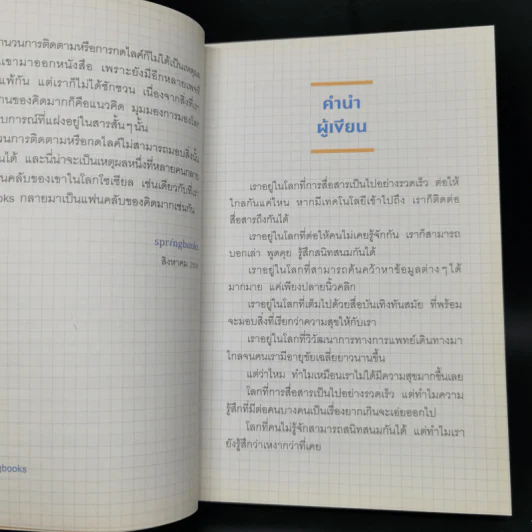 ำนวนการติดตามหรือการกดไลค์ก็ไม่ได้เป็นเหตุผล
เขามาออกหนังสือ เพราะยังมีอีกหลายเพจที่
แพ้กัน แต่เราก็ไม่ได้ชักชวน เนื่องจากสิ่งที่เรา
านของคิดมากก็คือแนวคิด มุมมองการมองโลก
บการณ์ที่แฝงอยู่ในสารสั้นๆ นั้น
วนการติดตามหรือกดไลค์ไม่สามารถมอบสิ่งนั้น
นได้ และนี่น่าจะเป็นเหตุผลหนึ่งที่หลายคนกลาย
นคลับของเขาในโลกโซเชียล เช่นเดียวกับที่เรา
ooks กลายมาเป็นแฟนคลับของคิดมากเช่นกัน
springbooks
สิงหาคม
gbooks
คำนำ
ผู้เขียน
เราอยู่ในโลกที่การสื่อสารเป็นไปอย่างรวดเร็ว ต่อให้
ไกลกันแค่ไหน หากมีเทคโนโลยีเข้าไปถึง เราก็ติดต่อ
สื่อสารถึงกันได้
เราอยู่ในโลกที่ต่อให้คนไม่เคยรู้จักกัน เราก็สามารถ
บอกเล่า พูดคุย รู้สึกสนิทสนมกันได้
เราอยู่ในโลกที่สามารถค้นคว้าหาข้อมูลต่างๆ ได้
มากมาย แค่เพียงปลายนิ้วคลิก
เราอยู่ในโลกที่เต็มไปด้วยสื่อบันเทิงทันสมัย ที่พร้อม
จะมอบสิ่งที่เรียกว่าความสุขให้กับเรา
เราอยู่ในโลกที่วิวัฒนาการทางการแพทย์เดินทางมา
ไกลจนคนเรามีอายุขัยเฉลี่ยยาวนานขึ้น
แต่ว่าไหม ทำไมเหมือนเราไม่ได้มีความสุขมากขึ้นเลย
โลกที่การสื่อสารเป็นไปอย่างรวดเร็ว แต่ทำไมความ
รู้สึกที่มีต่อคนบางคนเป็นเรื่องยากเกินจะเอ่ยออกไป
โลกที่คนไม่รู้จักสามารถสนิทสนมกันได้ แต่ทำไมเรา
ยังรู้สึกว่าเหงากว่าที่เคย